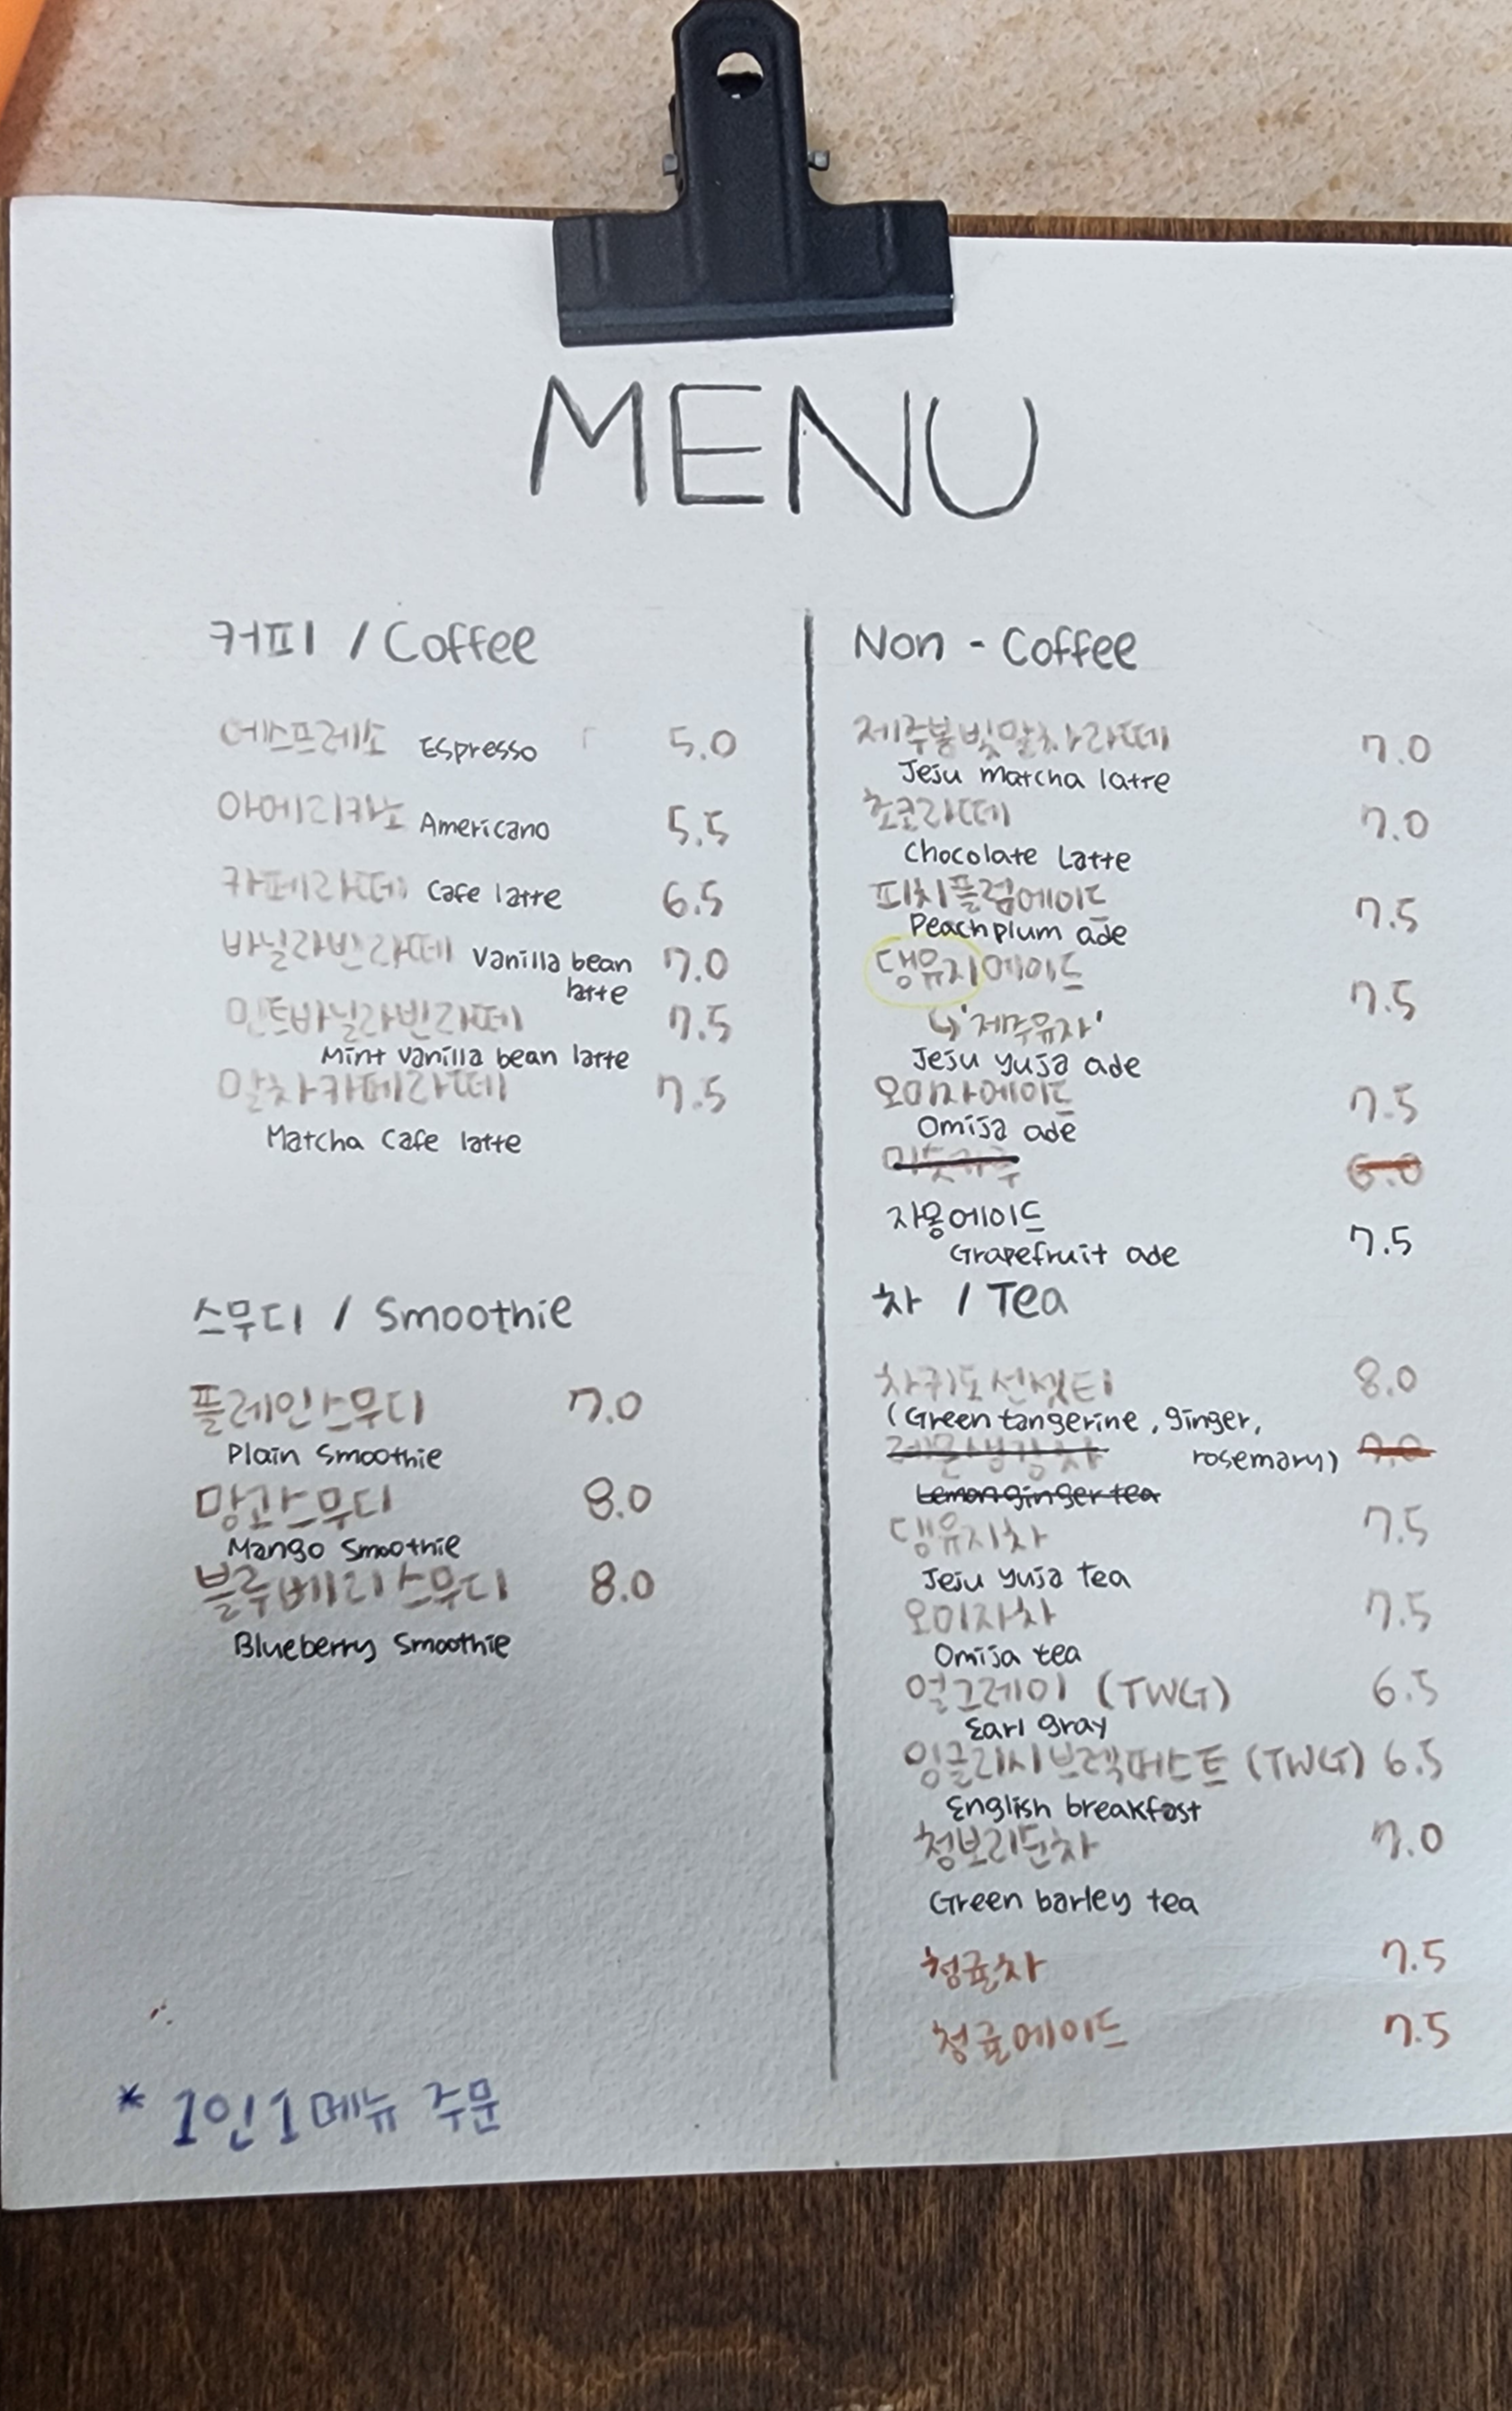 MENU
커피 / Coffee
에스프레소 Espresso 5.0
아메리카노 Americano 5.5
카페라떼 Cafe latte 6.5
바닐라빈라떼 Vanilla bean 7.0
latte
민트바닐라빈라떼 7.5
Mint vanilla bean latte
말차카페라떼 7.5
Matcha Cafe latte
스무디 / Smoothie
플레인스무디 7.0
Plain Smoothie
망고스무디 8.0
Mango Smoothie
블루베리스무디 8.0
Blueberry Smoothie
* 1인1메뉴 주문
Non - Coffee
제주봉빛말차라떼 7.0
Jeju matcha latte
초코라떼 7.0
Chocolate Latte
피치플럼에이드 7.5
Peach plum ade
댕유지에이드 7.5
↳'제주유자'
Jeju yuja ade
오미자에이드 7.5
Omija ade
미숫가루 6.0
자몽에이드
Grapefruit ade 7.5
차 / Tea
차귀도선셋티 8.0
(Green tangerine, ginger,
rosemary)
레몬생강차 7.0
Lemon ginger tea
댕유지차 7.5
Jeju yuja tea
오미자차 7.5
Omija tea
얼그레이 (TWG) 6.5
Earl gray
잉글리시브렉퍼스트 (TWG) 6.5
English breakfast
청보리순차 7.0
Green barley tea
청귤차 7.5
청귤에이드 7.5